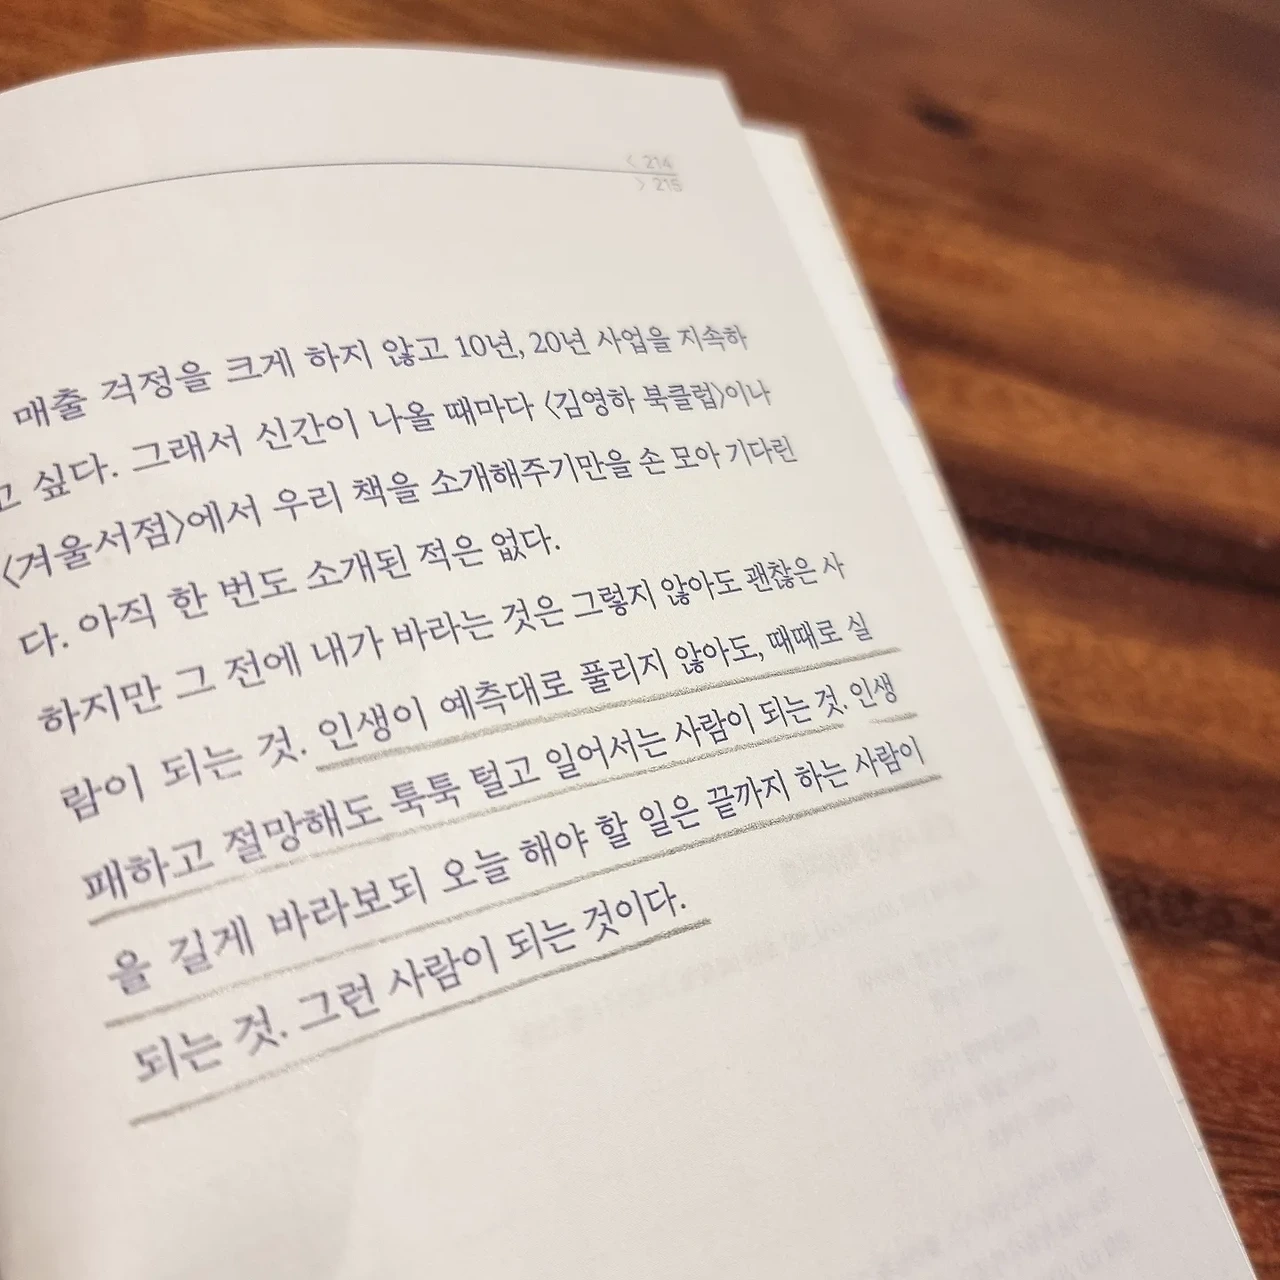 < 214
> 215
매출 걱정을 크게 하지 않고 10년, 20년 사업을 지속하
고 싶다. 그래서 신간이 나올 때마다 〈김영하 북클럽〉이나
〈겨울서점〉에서 우리 책을 소개해주기만을 손 모아 기다린
다. 아직 한 번도 소개된 적은 없다.
하지만 그 전에 내가 바라는 것은 그렇지 않아도 괜찮은 사
람이 되는 것. 인생이 예측대로 풀리지 않아도, 때때로 실
패하고 절망해도 툭툭 털고 일어서는 사람이 되는 것. 인생
을 길게 바라보되 오늘 해야 할 일은 끝까지 하는 사람이
되는 것. 그런 사람이 되는 것이다.